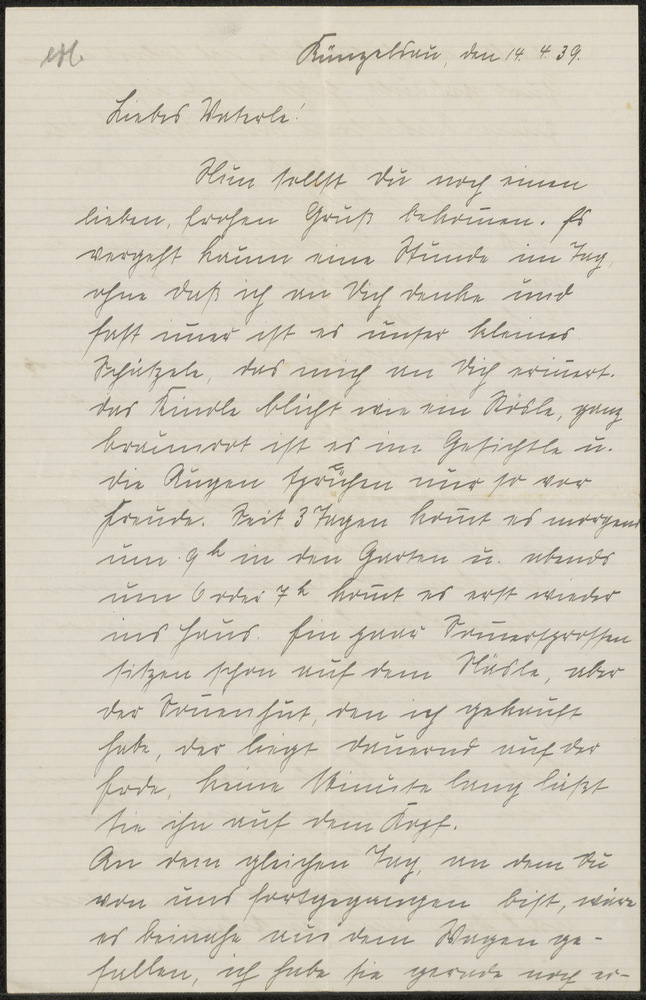 Künzelsau, den 14. 4. 39.
Liebes Vaterle!
Nun sollst Du noch einen
lieben, frohen Gruß bekom̅en. Es
vergeht kaum eine Stunde im Tag,
ohne daß ich an Dich denke und
fast im̅er ist es unser kleines
Schätzele, das mich an Dich erin̅ert.
Das Kindle blüht wie ein Rösle, ganz
braunrot ist es im Gesichtle u.
die Augen sprühen nur so vor
Freude. Seit 3 Tagen kom̅t es morgens
um 9 h in den Garten u. abends
um 6 oder 7 h kom̅t es erst wieder
ins Haus. Ein paar Som̅ersprossen
sitzen schon auf dem Näsle, aber
der Son̅enhut, den ich gekauft
habe, der liegt dauernd auf der
Erde, keine Minute lang läßt
sie ihn auf dem Kopf.
An dem gleichen Tag, an dem Du
von uns fortgegangen bist, wäre
es beinahe aus dem Wagen ge-
fallen, ich habe sie gerade noch er-